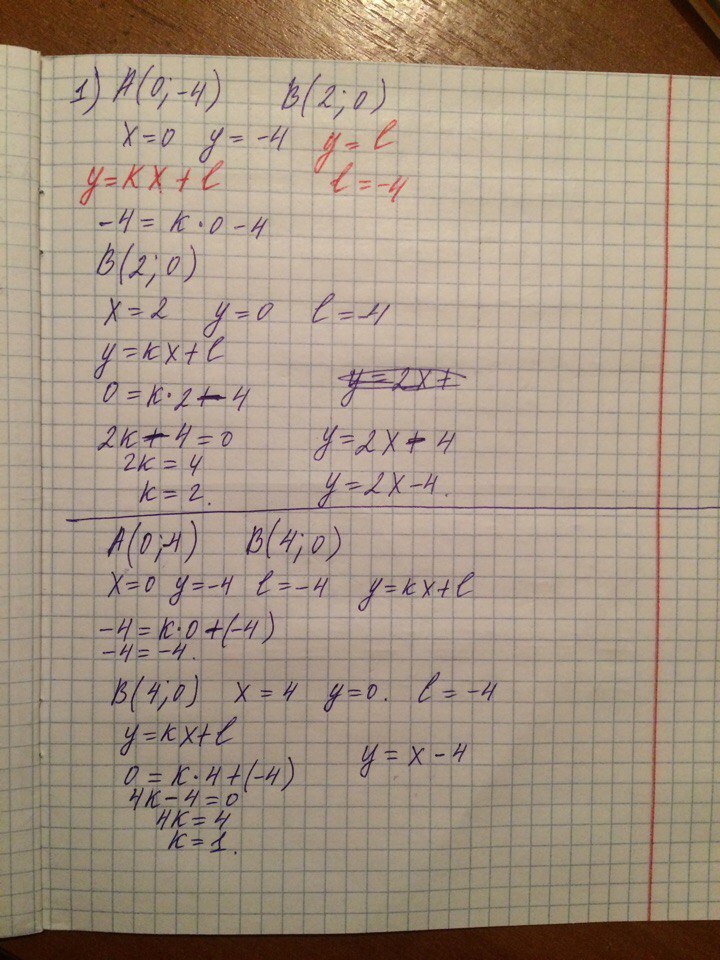 1) A(0;-4) B(2;0)
x=0 y=-4 y=l
y=kx+l l=-4
-4=k·0-4
B(2;0)
x=2 y=0 l=-4
y=kx+l
0=k·2-4
2k-4=0 y=2x-4
2k=4
k=2. y=2x-4.
A(0;-4) B(4;0)
x=0 y=-4 l=-4 y=kx+l
-4=k·0+(-4)
-4=-4.
B(4;0) x=4 y=0. l=-4
y=kx+l
y=x-4
0=k·4+(-4)
4k-4=0
4k=4
k=1.